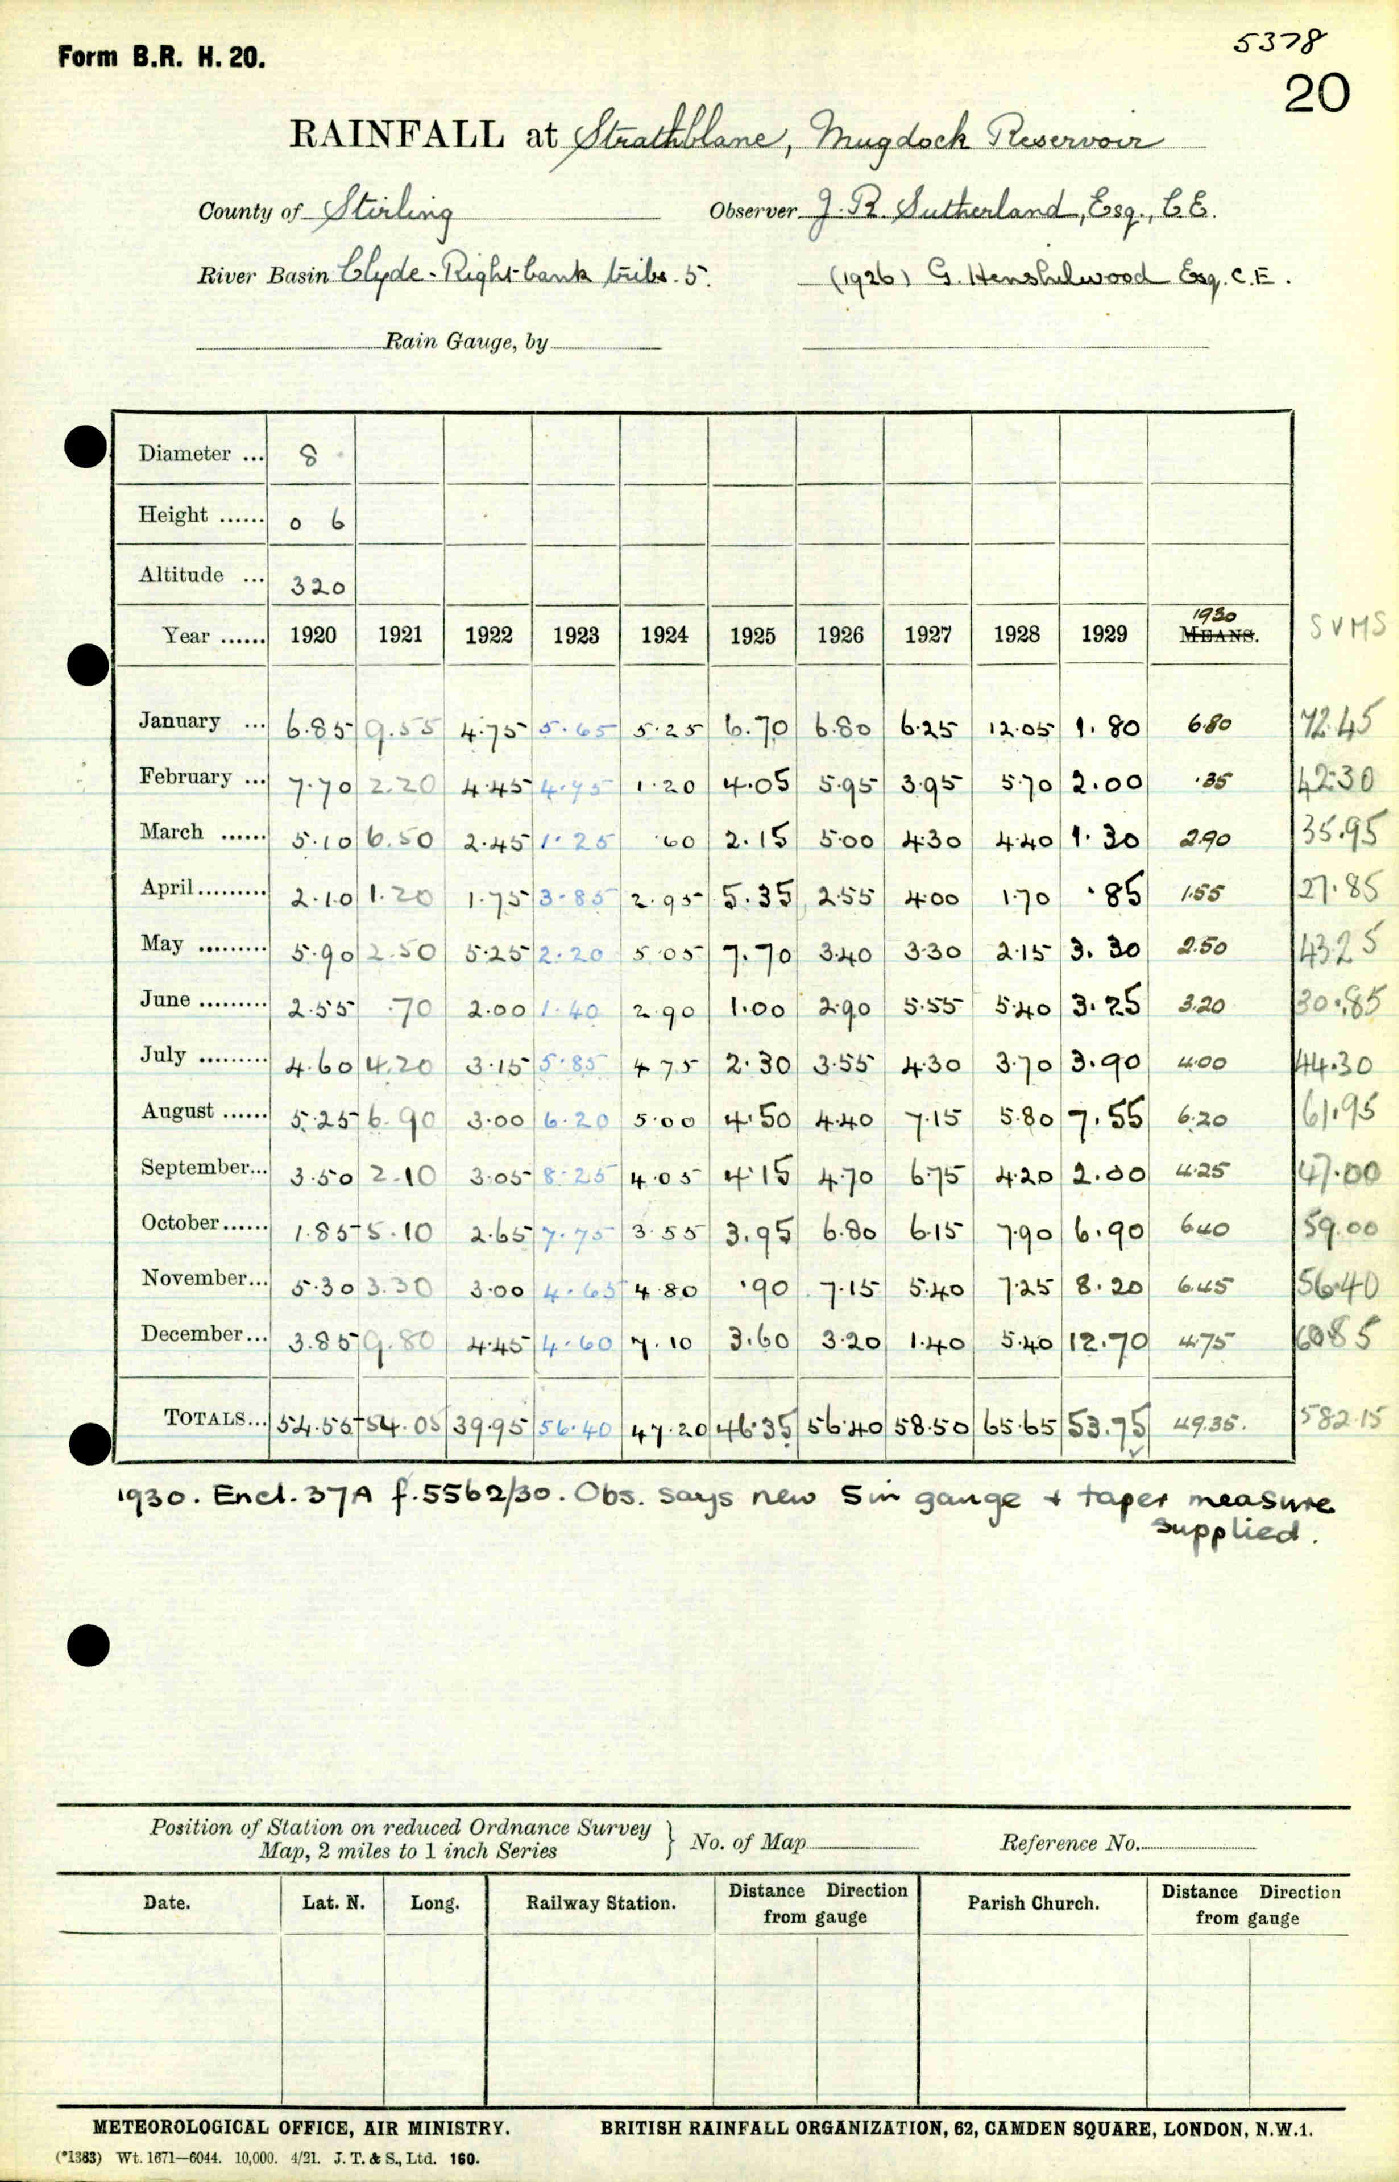 Form B.R. H. 20.
5378
20
RAINFALL at Strathblane, Mugdock Reservoir
County of Stirling Observer J. R. Sutherland, Esq., C.E.
River Basin Clyde - Right bank tribs. 5. (1926) G. Henshilwood Esq. C.E.
Rain Gauge, by
Diameter ... 8
Height ...... 0 6
Altitude ... 320
1930
Year ...... 1920 1921 1922 1923 1924 1925 1926 1927 1928 1929 MEANS. SUMS
January ... 6.85 9.55 4.75 5.65 5.25 6.70 6.80 6.25 12.05 1.80 6.80 72.45
February ... 7.70 2.20 4.45 4.95 1.20 4.05 5.95 3.95 5.70 2.00 .35 42.30
March ...... 5.10 6.50 2.45 1.25 .60 2.15 5.00 4.30 4.40 1.30 2.90 35.95
April......... 2.10 1.20 1.75 3.85 2.95 5.35 2.55 4.00 1.70 .85 1.55 27.85
May ......... 5.90 2.50 5.25 2.20 5.05 7.70 3.40 3.30 2.15 3.30 2.50 43.25
June ......... 2.55 .70 2.00 1.40 2.90 1.00 2.90 5.55 5.40 3.25 3.20 30.85
July ......... 4.60 4.20 3.15 5.85 4.75 2.30 3.55 4.30 3.70 3.90 4.00 44.30
August ...... 5.25 6.90 3.00 6.20 5.00 4.50 4.40 7.15 5.80 7.55 6.20 61.95
September... 3.50 2.10 3.05 8.25 4.05 4.15 4.70 6.75 4.20 2.00 4.25 47.00
October...... 1.85 5.10 2.65 7.75 3.55 3.95 6.80 6.15 7.90 6.90 6.40 59.00
November... 5.30 3.30 3.00 4.65 4.80 .90 7.15 5.40 7.25 8.20 6.45 56.40
December... 3.85 9.80 4.45 4.60 7.10 3.60 3.20 1.40 5.40 12.70 4.75 60.85
TOTALS... 54.55 54.05 39.95 56.40 47.20 46.35 56.40 58.50 65.65 53.75 49.35. 582.15
1930. Encl. 37A f. 5562/30. Obs. says new 5in gauge + taper measure
supplied.
Position of Station on reduced Ordnance Survey
Map, 2 miles to 1 inch Series } No. of Map Reference No.
Date. Lat. N. Long. Railway Station. Distance Direction from gauge Parish Church. Distance Direction from gauge
METEOROLOGICAL OFFICE, AIR MINISTRY. BRITISH RAINFALL ORGANIZATION, 62, CAMDEN SQUARE, LONDON, N.W.1.
(*1383) Wt. 1671—6044. 10,000. 4/21. J. T. & S., Ltd. 160.